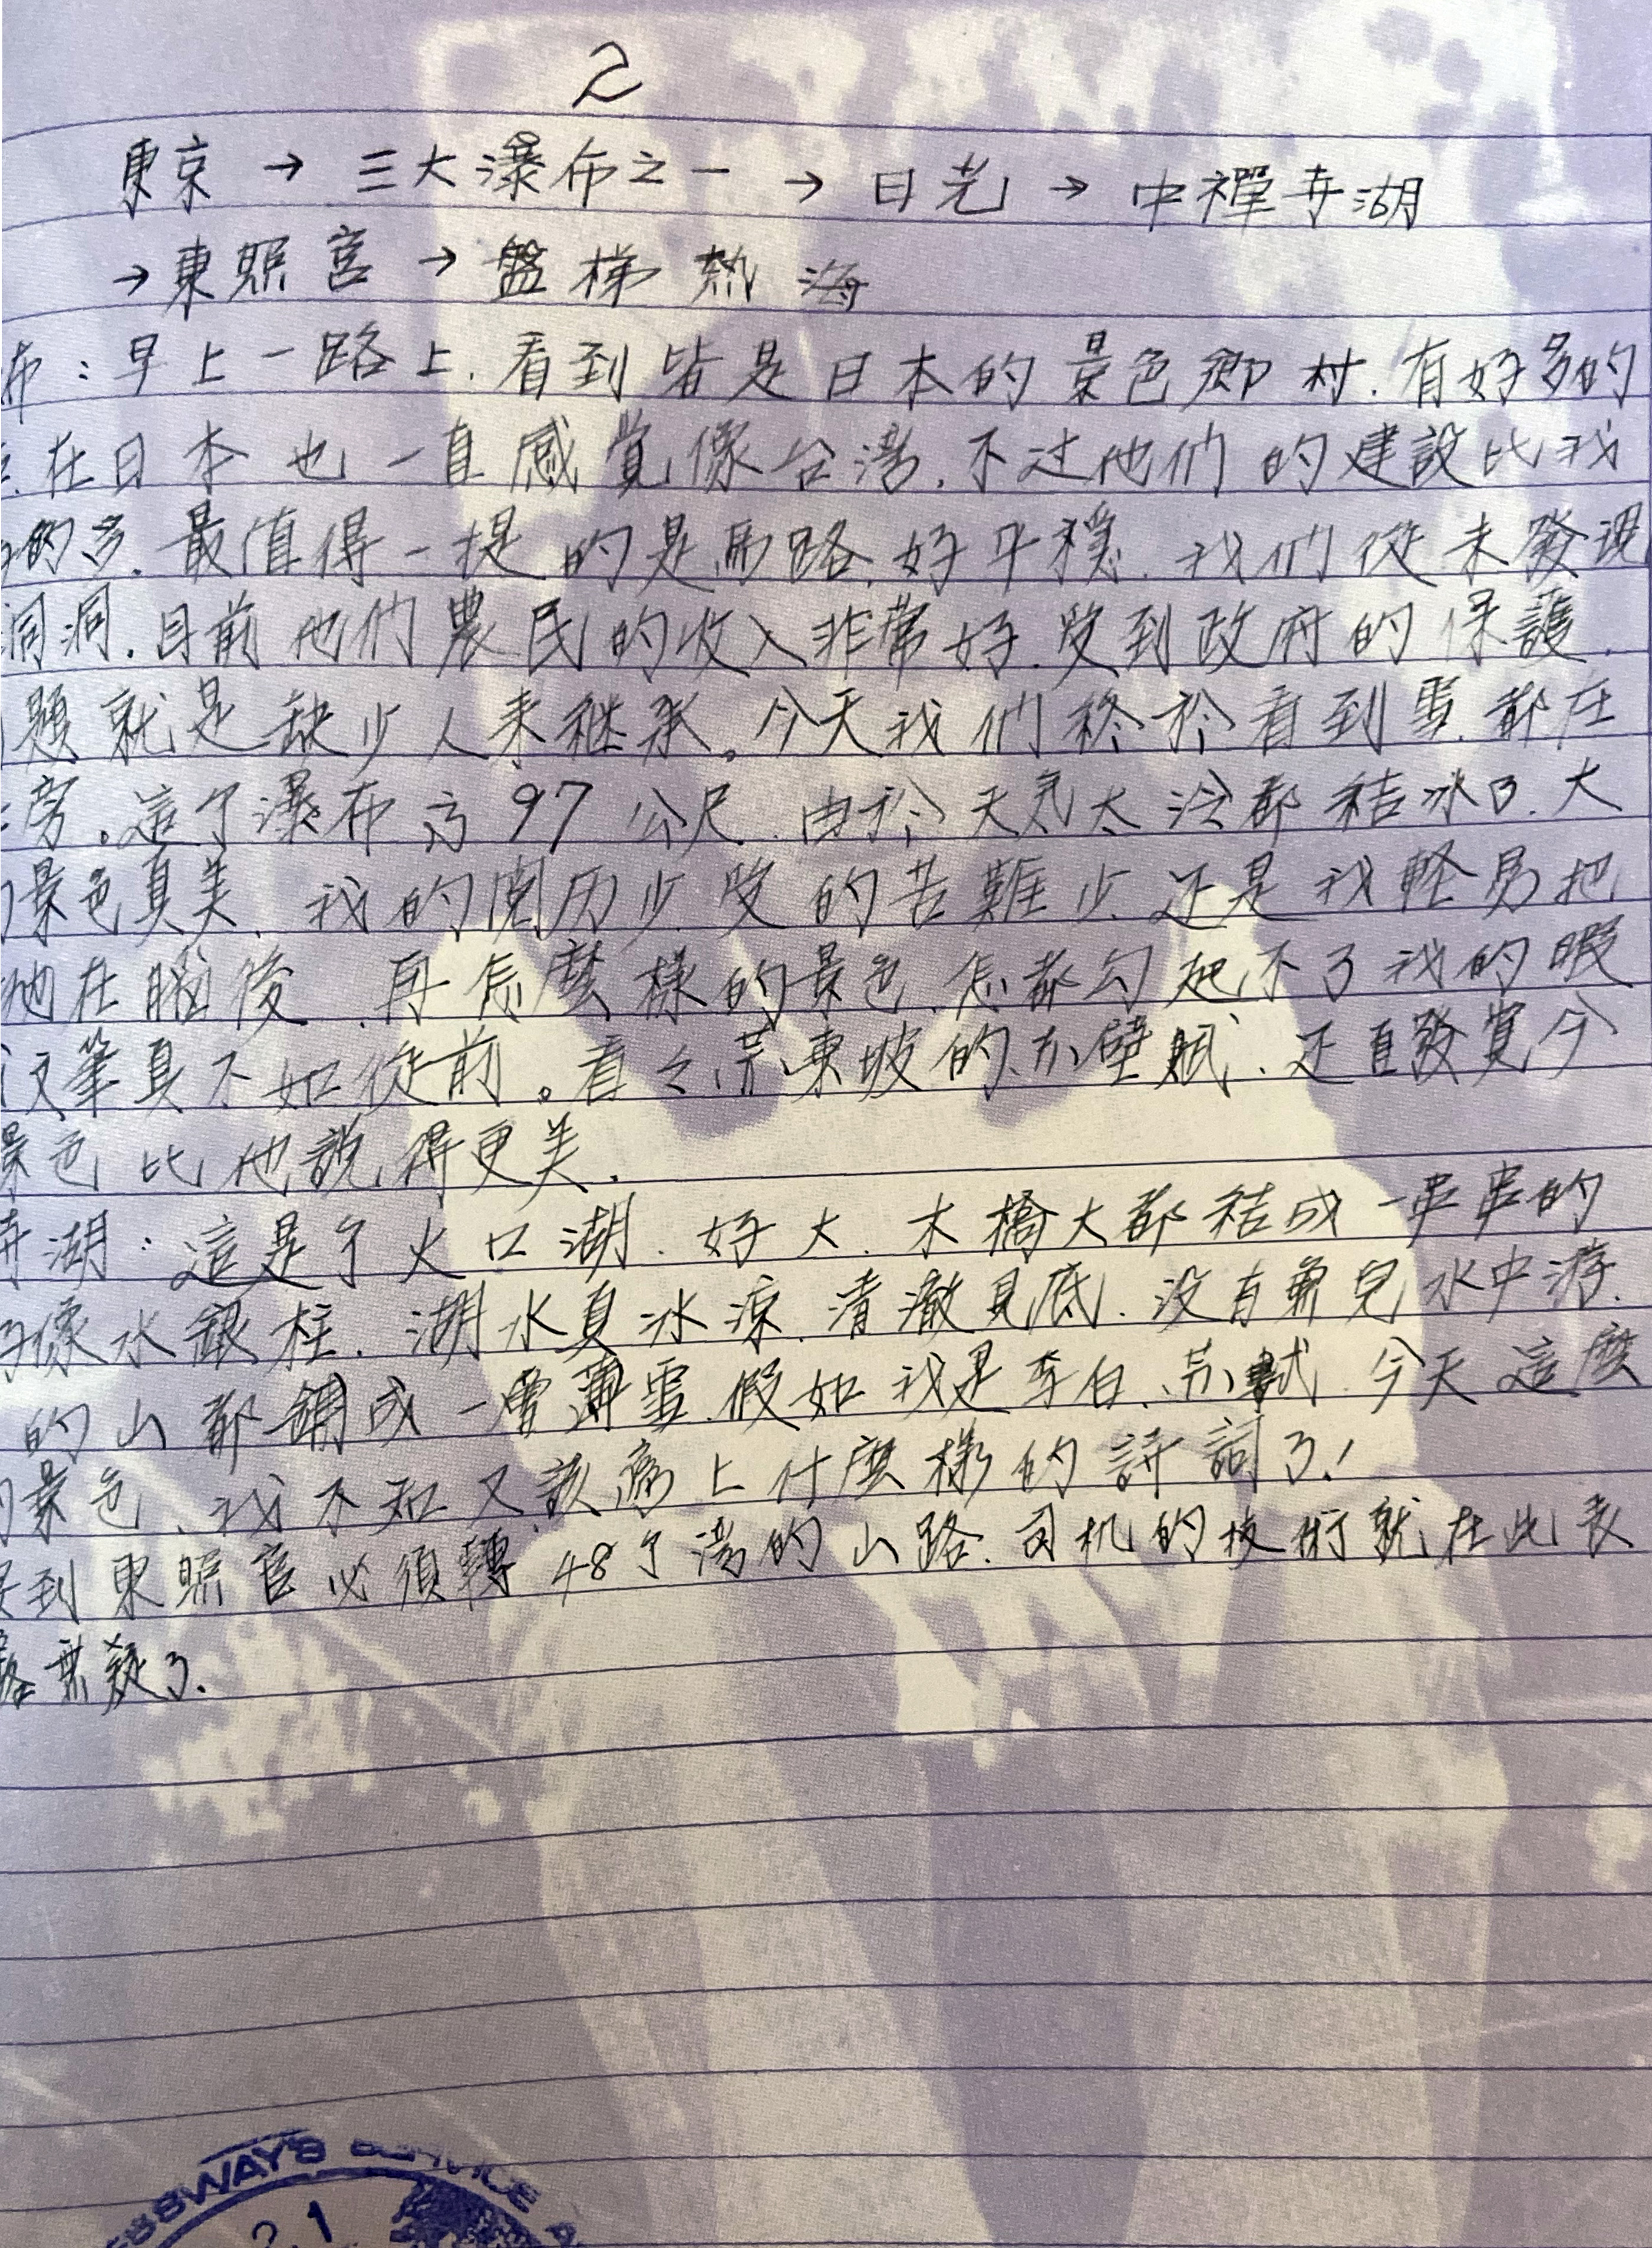 2
東京 → 三大瀑布之一 → 日光 → 中禪寺湖
→ 東照宮 → 盤梯熱海
布：早上一路上.看到皆是日本的景色鄉村.有好多的
在日本也一直感覺像台灣.不过他们的建設比我
的多.最值得一提的是馬路.好平穩.我們從未發現
洞洞.目前他们農民的收入非常好.受到政府的保護.
題就是缺少人来継承。今天我們終於看到雪.都在
旁。這个瀑布高97公尺.由於天気太冷都結冰了.大
景色真美.我的閱历少.受的苦難少.还是我輕易把
他在腦後.再怎麼樣的景色.怎都勾起不了我的暇
筆真不如從前。看之蘇東坡的赤壁賦.还直發覚今
景色比他說得更美.
寺湖：這是个火口湖.好大.木橋大都結成一串串的
像水銀柱.湖水真冰涼.清澈見底.沒有魚兒水中游.
的山都鋪成一層薄雪.假如我是李白.蘇軾.今天這麼
景色.我不知又該寫上什麼樣的詩詞了!
到東照宮必須轉48个湾的山路.司机的技術就在此表
露無疑了.
WAYS SERVICE A
21